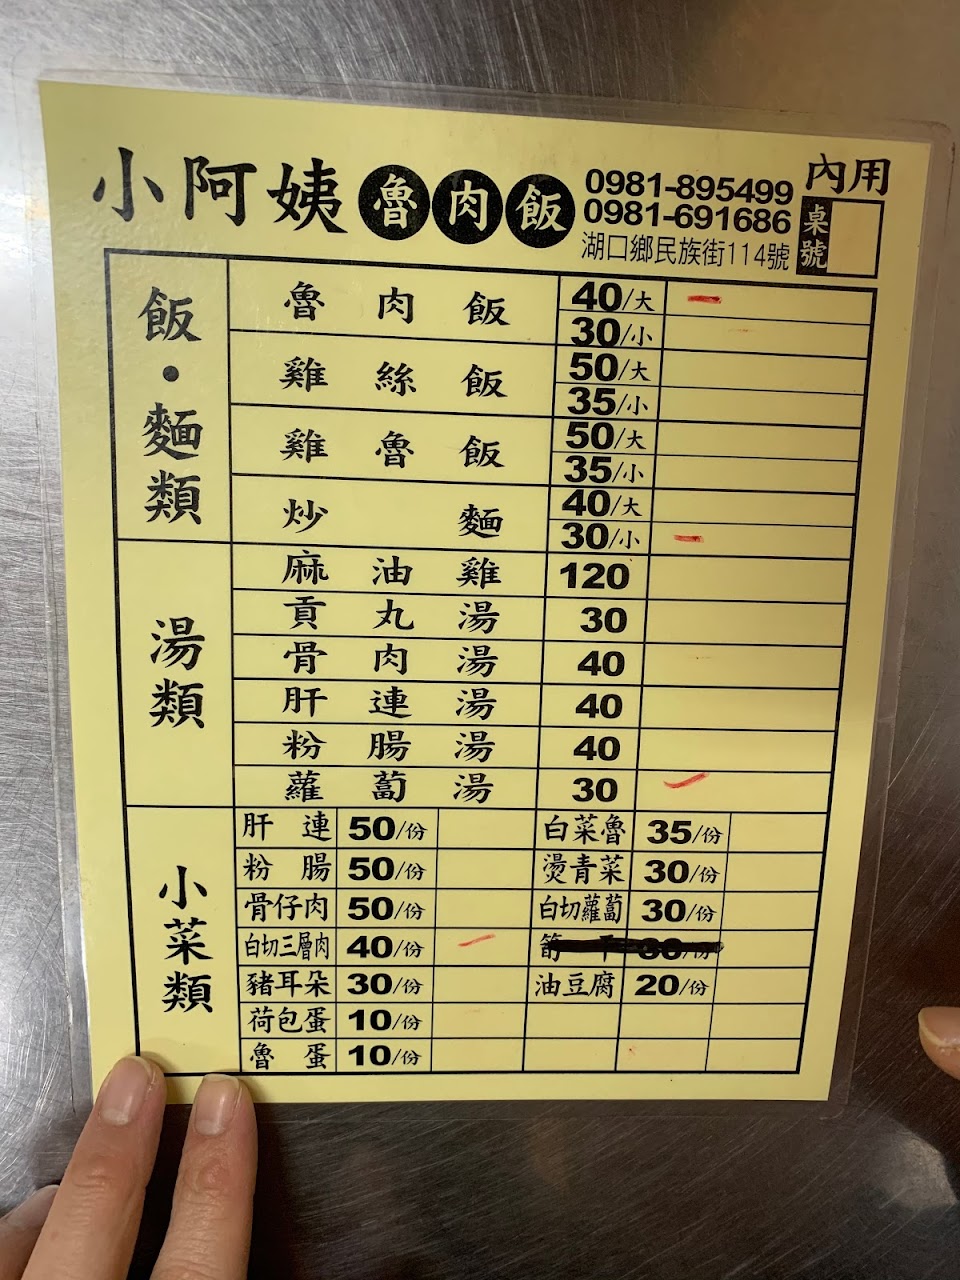 小阿姨魯肉飯
0981-895499
0981-691686
湖口鄉民族街114號
內用
桌號
飯・麵類
魯肉飯 40/大
30/小
雞絲飯 50/大
35/小
雞魯飯 50/大
35/小
炒麵 40/大
30/小
湯類
麻油雞 120
貢丸湯 30
骨肉湯 40
肝連湯 40
粉腸湯 40
蘿蔔湯 30
小菜類
肝連 50/份 白菜魯 35/份
粉腸 50/份 燙青菜 30/份
骨仔肉 50/份 白切蘿蔔 30/份
白切三層肉 40/份 30/份
豬耳朵 30/份 油豆腐 20/份
荷包蛋 10/份
魯蛋 10/份